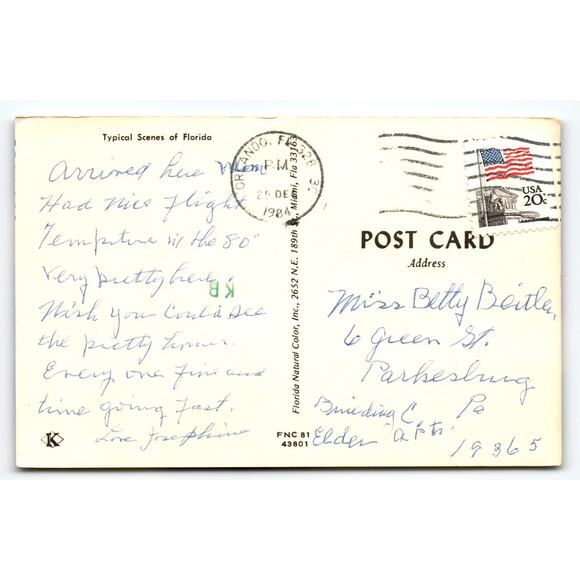 Typical Scenes of Florida
Arrived here Mon
Had nice flight
Tempture in the 80"
Very pretty here.
Wish you could see
the pretty homes.
Every one fine and
time going fast.
Love Josephine
K
KB
Florida Natural Color, Inc., 2652 N.E. 189th St., Miami, Fla 33180
FNC 81
43601
ORLANDO, FL 328
PM
29 DEC
1984
USA
20c
POST CARD
Address
Miss Betty Beitler,
6 Green St.
Parkesburg
Building C Pa
Elder "apts" 19365